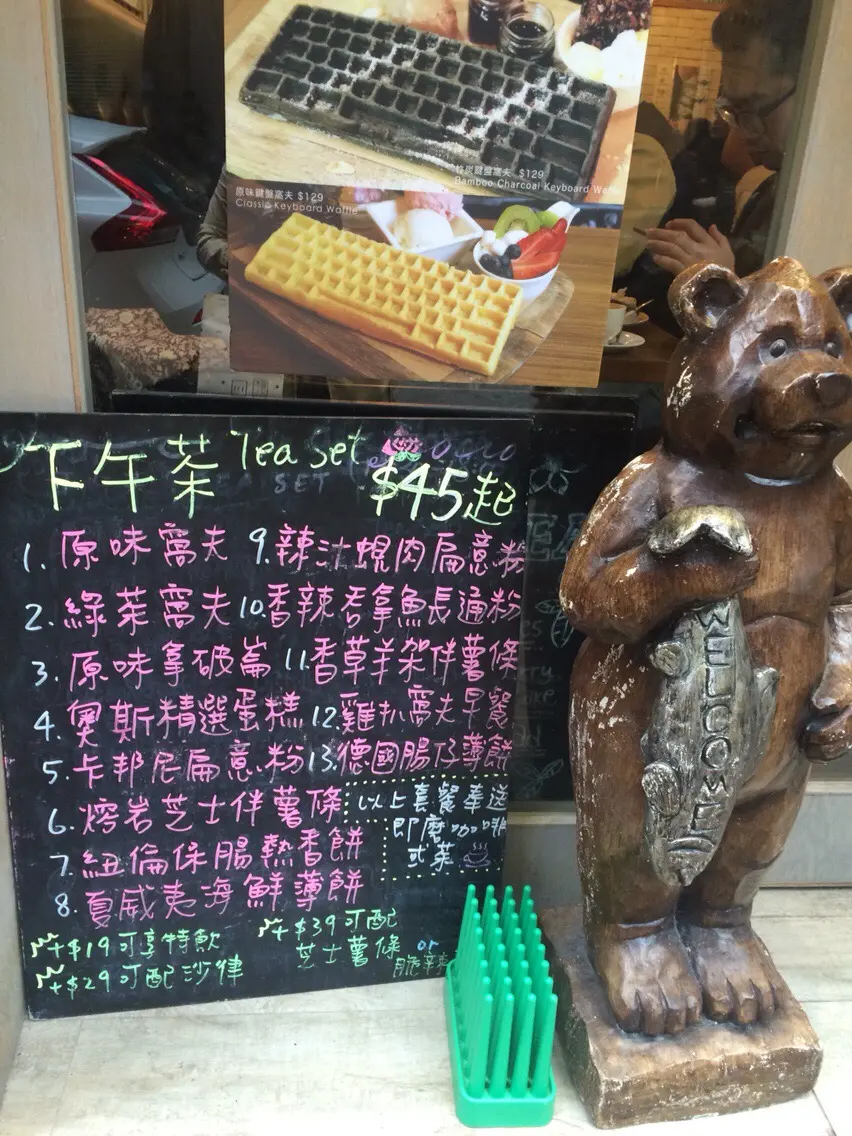 竹炭鍵盤窩夫 $129
Bamboo Charcoal Keyboard Waffle
原味鍵盤窩夫 $129
Classic Keyboard Waffle
下午茶 Tea Set $45起
1. 原味窩夫
2. 綠茶窩夫
3. 原味拿破崙
4. 奧斯精選蛋糕
5. 卡邦尼扁意粉
6. 熔岩芝士伴薯條
7. 紐倫保腸熱香餅
8. 夏威夷海鮮薄餅
9. 辣汁蜆肉扁意粉
10. 香辣吞拿魚長通粉
11. 香草羊架伴薯條
12. 雞扒窩夫早餐
13. 德國腸仔薄餅
以上套餐奉送
即磨咖啡
或茶
+$19可享特飲
+$29可配沙律
+$39可配
芝士薯條 or
脆辣
WELCOME